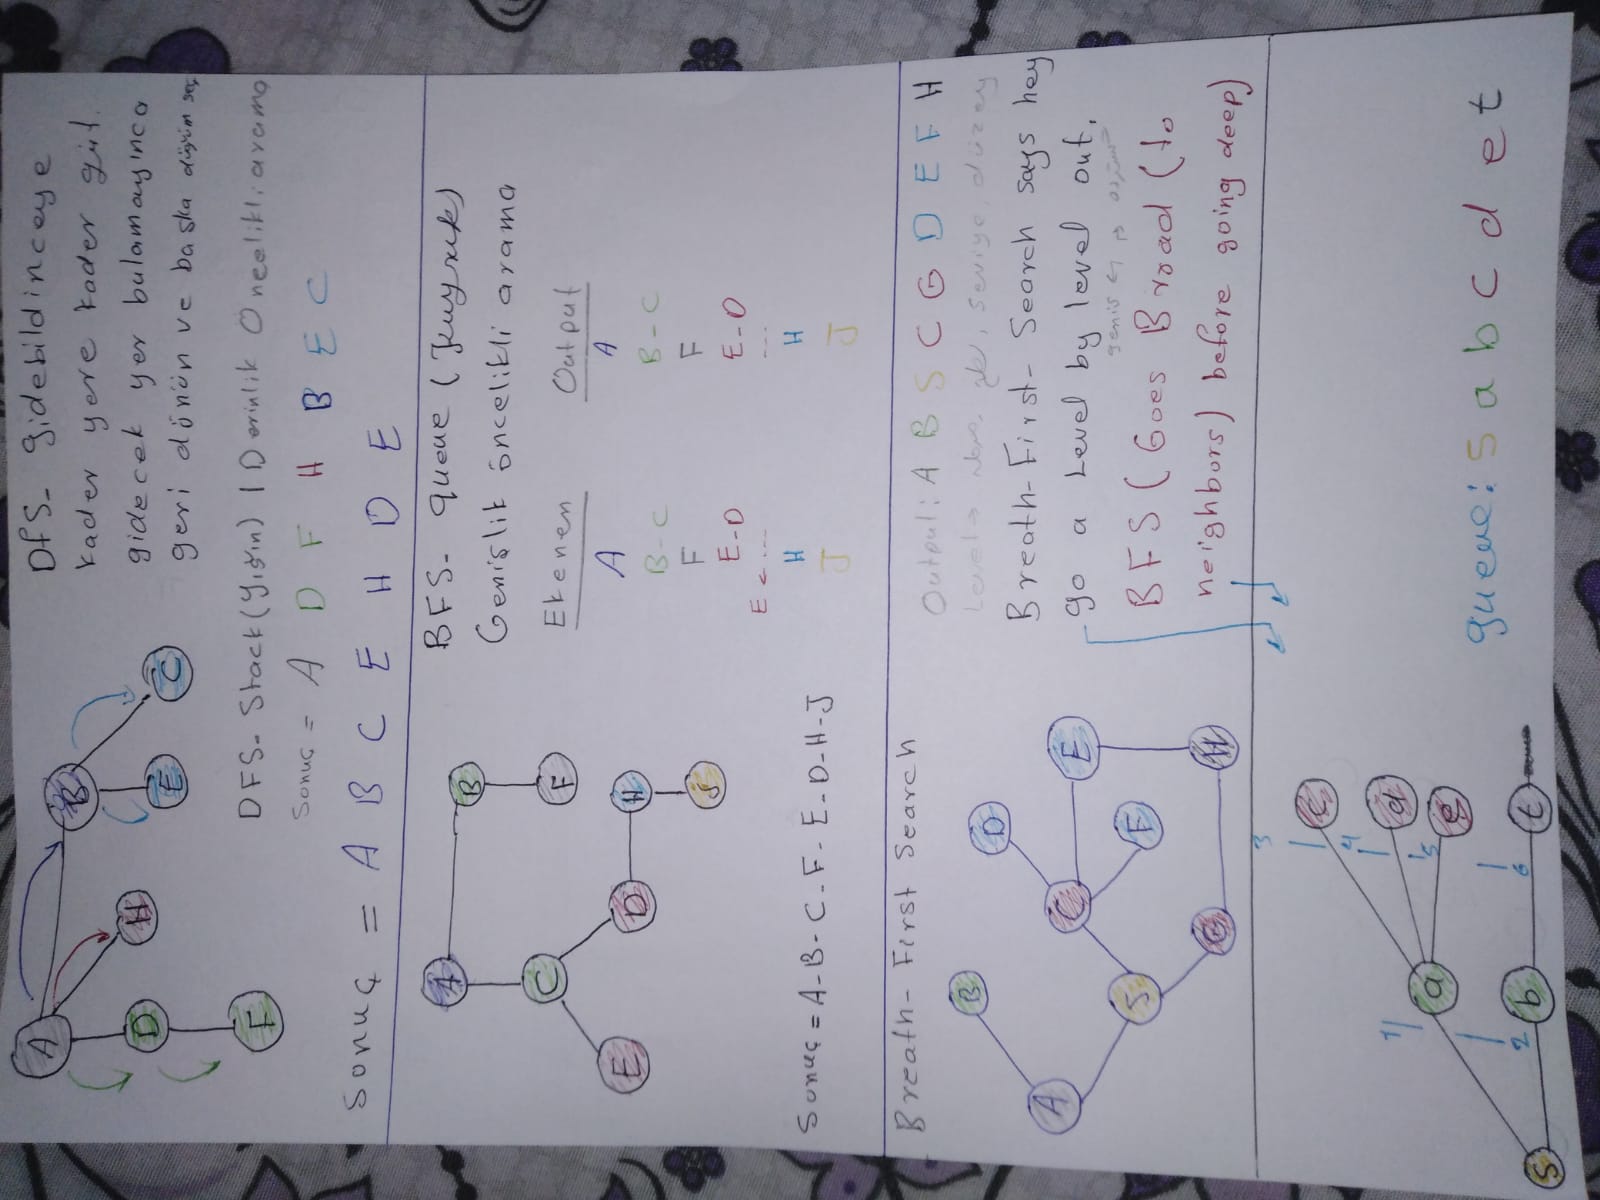 DFS- gidebildinceye
kader yere kader git.
gidecek yer bulamayınca
geri dönün ve başka düğüm seç
A
B
C
D
E
F
H
DFS- Stack (Yığın) | Derinlik Öncelikli arama
Sonuç = A D F H B E C
Sonuç = A B C E H D E
BFS- queue (kuyruk)
Genişlik öncelikli arama
Ekenen Output
A A
B-C B-C
F F
E-D E-D
E <.... ....
H H
J J
A
B
C
F
D
H
J
E
Sonuç = A-B-C-F-E-D-H-J
Breath-First Search
Output: A B S C G D E F H
seviye, düzey
Breath-First-Search says hey
go a level by level out,
geniş
BFS (Goes Broad (to
neighbors) before going deep)
A
B
S
C
G
D
E
F
H
S
a
b
c
d
e
t
1
2
3
4
5
6
queue: S a b c d e t